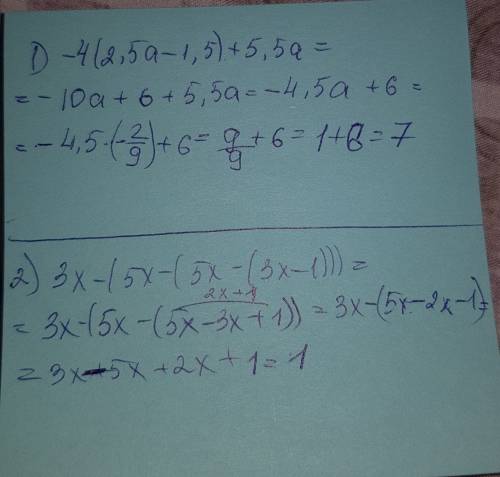 1) -4(2,5a-1,5)+5,5a=
=-10a+6+5,5a=-4,5a+6=
=-4,5·(-2/9)+6=9/9+6=1+6=7
2) 3x-(5x-(5x-(3x-1)))=
2x+1
=3x-(5x-(5x-3x+1))=3x-(5x-2x-1)=
=3x-5x+2x+1=1